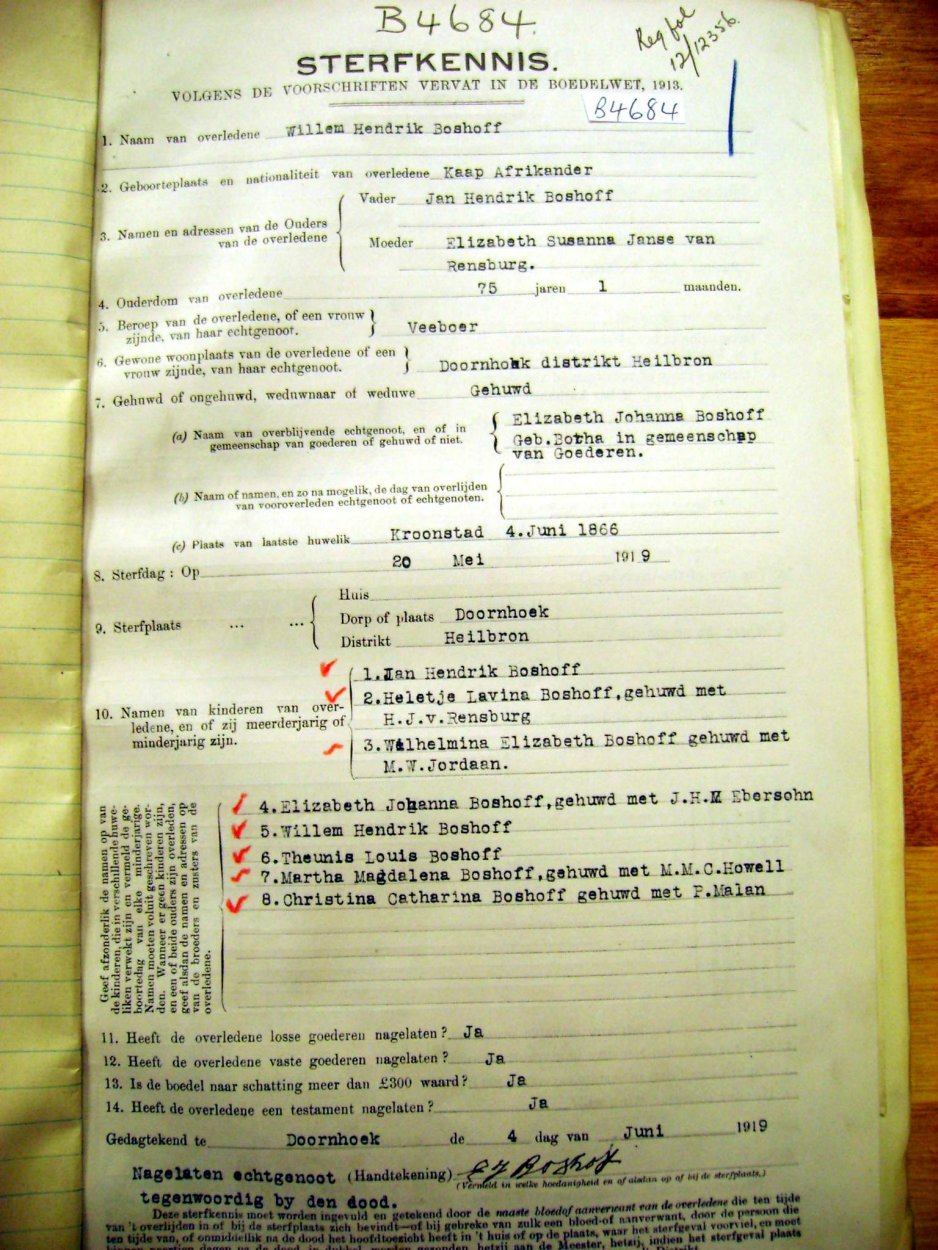 B4684.
Reg fol
12/12356.
STERFKENNIS.
VOLGENS DE VOORSCHRIFTEN VERVAT IN DE BOEDELWET, 1913.
B4684
1. Naam van overledene Willem Hendrik Boshoff
2. Geboorteplaats en nationaliteit van overledene Kaap Afrikander
3. Namen en adressen van de Ouders van de overledene
Vader Jan Hendrik Boshoff
Moeder Elizabeth Susanna Janse van
Rensburg.
4. Ouderdom van overledene 75 jaren 1 maanden.
5. Beroep van de overledene, of een vrouw
zijnde, van haar echtgenoot. Veeboer
6. Gewone woonplaats van de overledene of een
vrouw zijnde, van haar echtgenoot. Doornhoek distrikt Heilbron
7. Gehuwd of ongehuwd, weduwnaar of weduwe Gehuwd
(a) Naam van overblijvende echtgenoot, en of in
gemeenschap van goederen of gehuwd of niet.
Elizabeth Johanna Boshoff
Geb.Botha in gemeenschap
van Goederen.
(b) Naam of namen, en zo na mogelik, de dag van overlijden
van vooroverleden echtgenoot of echtgenoten.
(c) Plaats van laatste huwelik Kroonstad 4.Juni 1866
8. Sterfdag : Op 20 Mei 1919
9. Sterfplaats ... ...
Huis
Dorp of plaats Doornhoek
Distrikt Heilbron
10. Namen van kinderen van over-
ledene, en of zij meerderjarig of
minderjarig zijn.
1.Jan Hendrik Boshoff
2.Heletje Lavina Boshoff,gehuwd met
H.J.v.Rensburg
3.Wilhelmina Elizabeth Boshoff gehuwd met
M.W.Jordaan.
Geef afzonderlik de namen op van
de kinderen, die in verschillende huwe-
liken verwekt zijn en vermeld de ge-
boortedag van elke minderjarige.
Namen moeten voluit geschreven wor-
den. Wanneer er geen kinderen zijn,
en een of beide ouders zijn overleden,
geef alsdan de namen en adressen op
van de broeders en zusters van de
overledene.
4.Elizabeth Johanna Boshoff,gehuwd met J.H. Ebersohn
5.Willem Hendrik Boshoff
6.Theunis Louis Boshoff
7.Martha Magdalena Boshoff,gehuwd met M.M.C.Howell
8.Christina Catharina Boshoff gehuwd met P.Malan
11. Heeft de overledene losse goederen nagelaten ? Ja
12. Heeft de overledene vaste goederen nagelaten ? Ja
13. Is de boedel naar schatting meer dan £300 waard ? Ja
14. Heeft de overledene een testament nagelaten ? Ja
Gedagtekend te Doornhoek de 4 dag van Juni 1919
Nagelaten echtgenoot (Handtekening) E J Boshoff
(Vermeld in welke hoedanigheid en of alsdan op of bij de sterfplaats.)
tegenwoordig by den dood.
Deze sterfkennis moet worden ingevuld en getekend door de naaste bloedaanverwant van de overledene die ten tijde
van 't overlijden in of bij de sterfplaats zich bevindt—of bij gebreke van zulk een bloed-of aanverwant, door de persoon die
ten tijde van, of onmiddellik na de dood het hoofdtoezicht heeft in 't huis of op de plaats, waar het sterfgeval voorviel, en moet